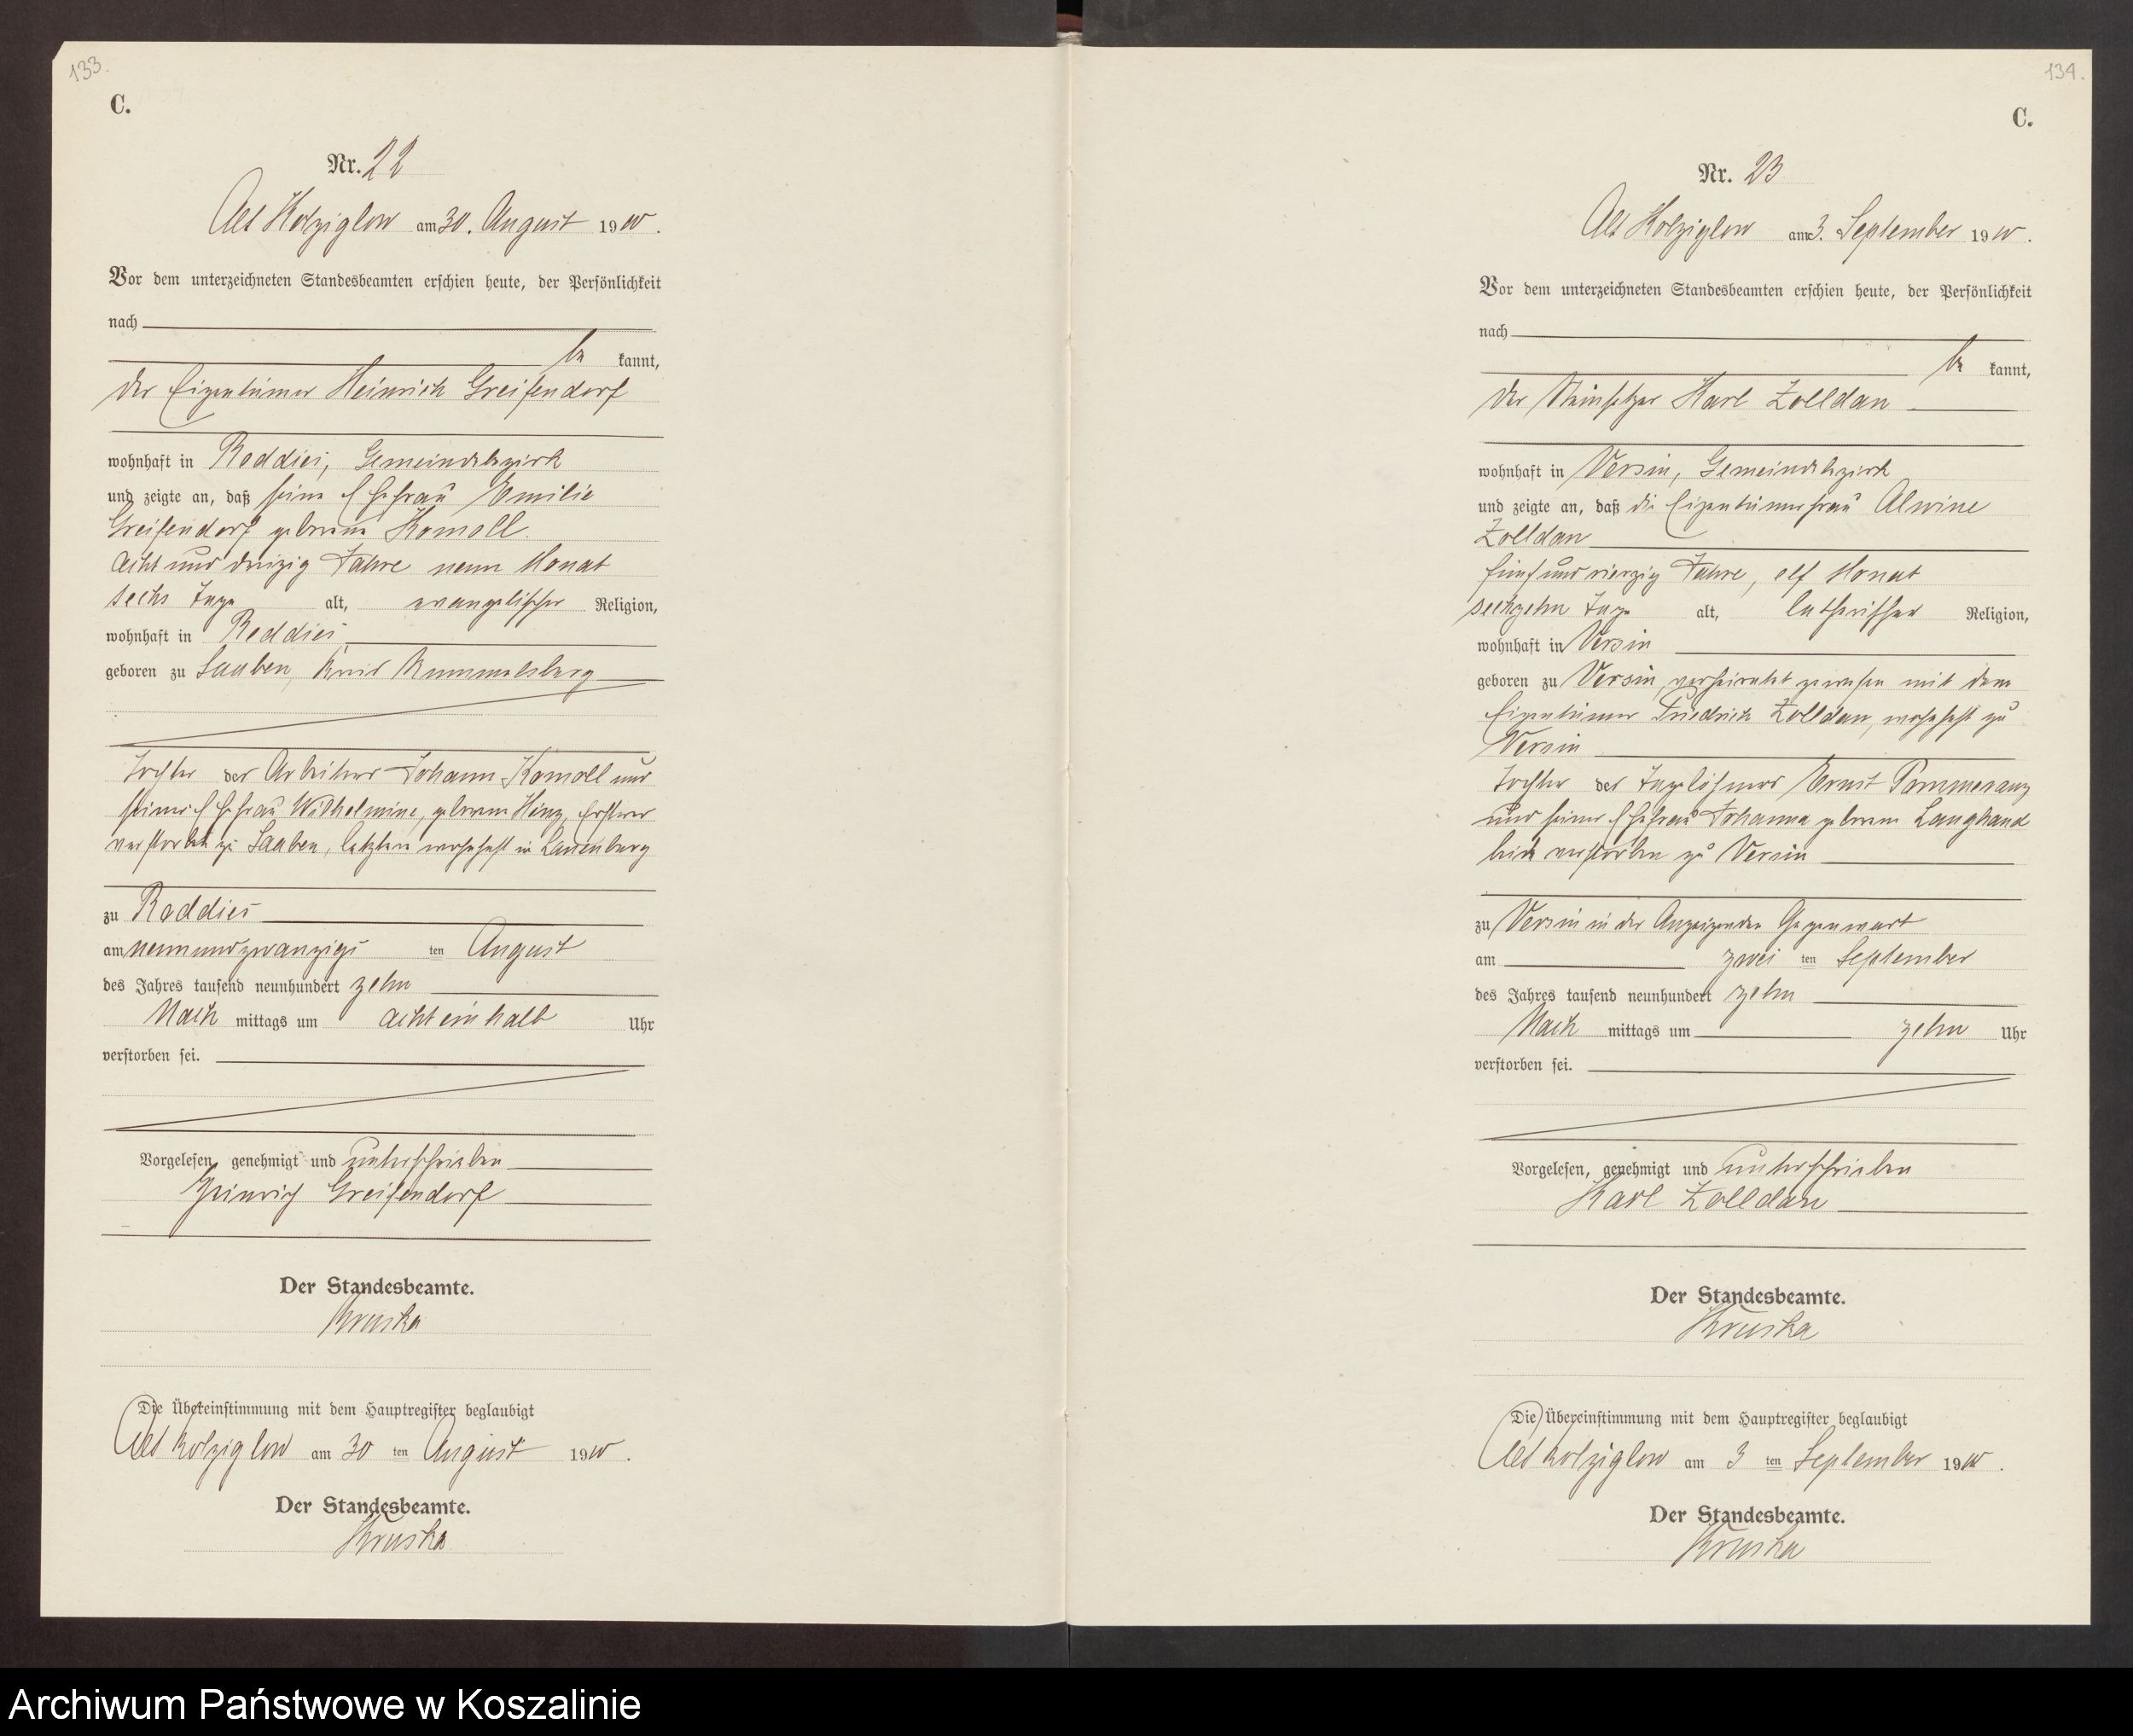 133.
C.
Nr. 22
Alt Kolziglow am 30. August 1910.
Vor dem unterzeichneten Standesbeamten erschien heute, der Persönlichkeit
nach
be kannt,
der Eigentümer Heinrich Greifendorf
wohnhaft in Reddies, Gemeindebezirk
und zeigte an, daß seine Ehefrau Emilie
Greifendorf geborene Komoll
acht und dreizig Jahre neun Monat
sechs Tage alt, evangelischer Religion,
wohnhaft in Reddies
geboren zu Saaben, Kreis Rummelsburg
Tochter des Arbeiters Johann Komoll und
seiner Ehefrau Wilhelmine, geborene Hinz, Ersterer
verstorben zu Saaben, letztere wohnhaft in Lauenburg
zu Reddies
am neunundzwanzigs ten August
des Jahres tausend neunhundert zehn
Nach mittags um acht ein halb Uhr
verstorben sei.
Vorgelesen, genehmigt und unterschrieben
Heinrich Greifendorf
Der Standesbeamte.
Kruska
Die Übereinstimmung mit dem Hauptregister beglaubigt
Alt Kolziglow am 30 ten August 1910.
Der Standesbeamte.
Kruska
134.
C.
Nr. 23
Alt Kolziglow am 3. September 1910.
Vor dem unterzeichneten Standesbeamten erschien heute, der Persönlichkeit
nach
be kannt,
der Steinsetzer Karl Zolldan
wohnhaft in Versin, Gemeindebezirk
und zeigte an, daß die Eigentümerfrau Alwine
Zolldan
fünf und vierzig Jahre, elf Monat
sechzehn Tage alt, lutherischer Religion,
wohnhaft in Versin
geboren zu Versin, verheiratet gewesen mit dem
Eigentümer Friedrich Zolldan, wohnhaft zu
Versin
Tochter des Tagelöhners Ernst Pommeranz
und seiner Ehefrau Johanna geborene Langhand
beide verstorben zu Versin
zu Versin in der Anzeigenden Gegenwart
am zwei ten September
des Jahres tausend neunhundert zehn
Nach mittags um zehn Uhr
verstorben sei.
Vorgelesen, genehmigt und unterschrieben
Karl Zolldan
Der Standesbeamte.
Kruska
Die Übereinstimmung mit dem Hauptregister beglaubigt
Alt Kolziglow am 3 ten September 1910.
Der Standesbeamte.
Kruska
Archiwum Państwowe w Koszalinie